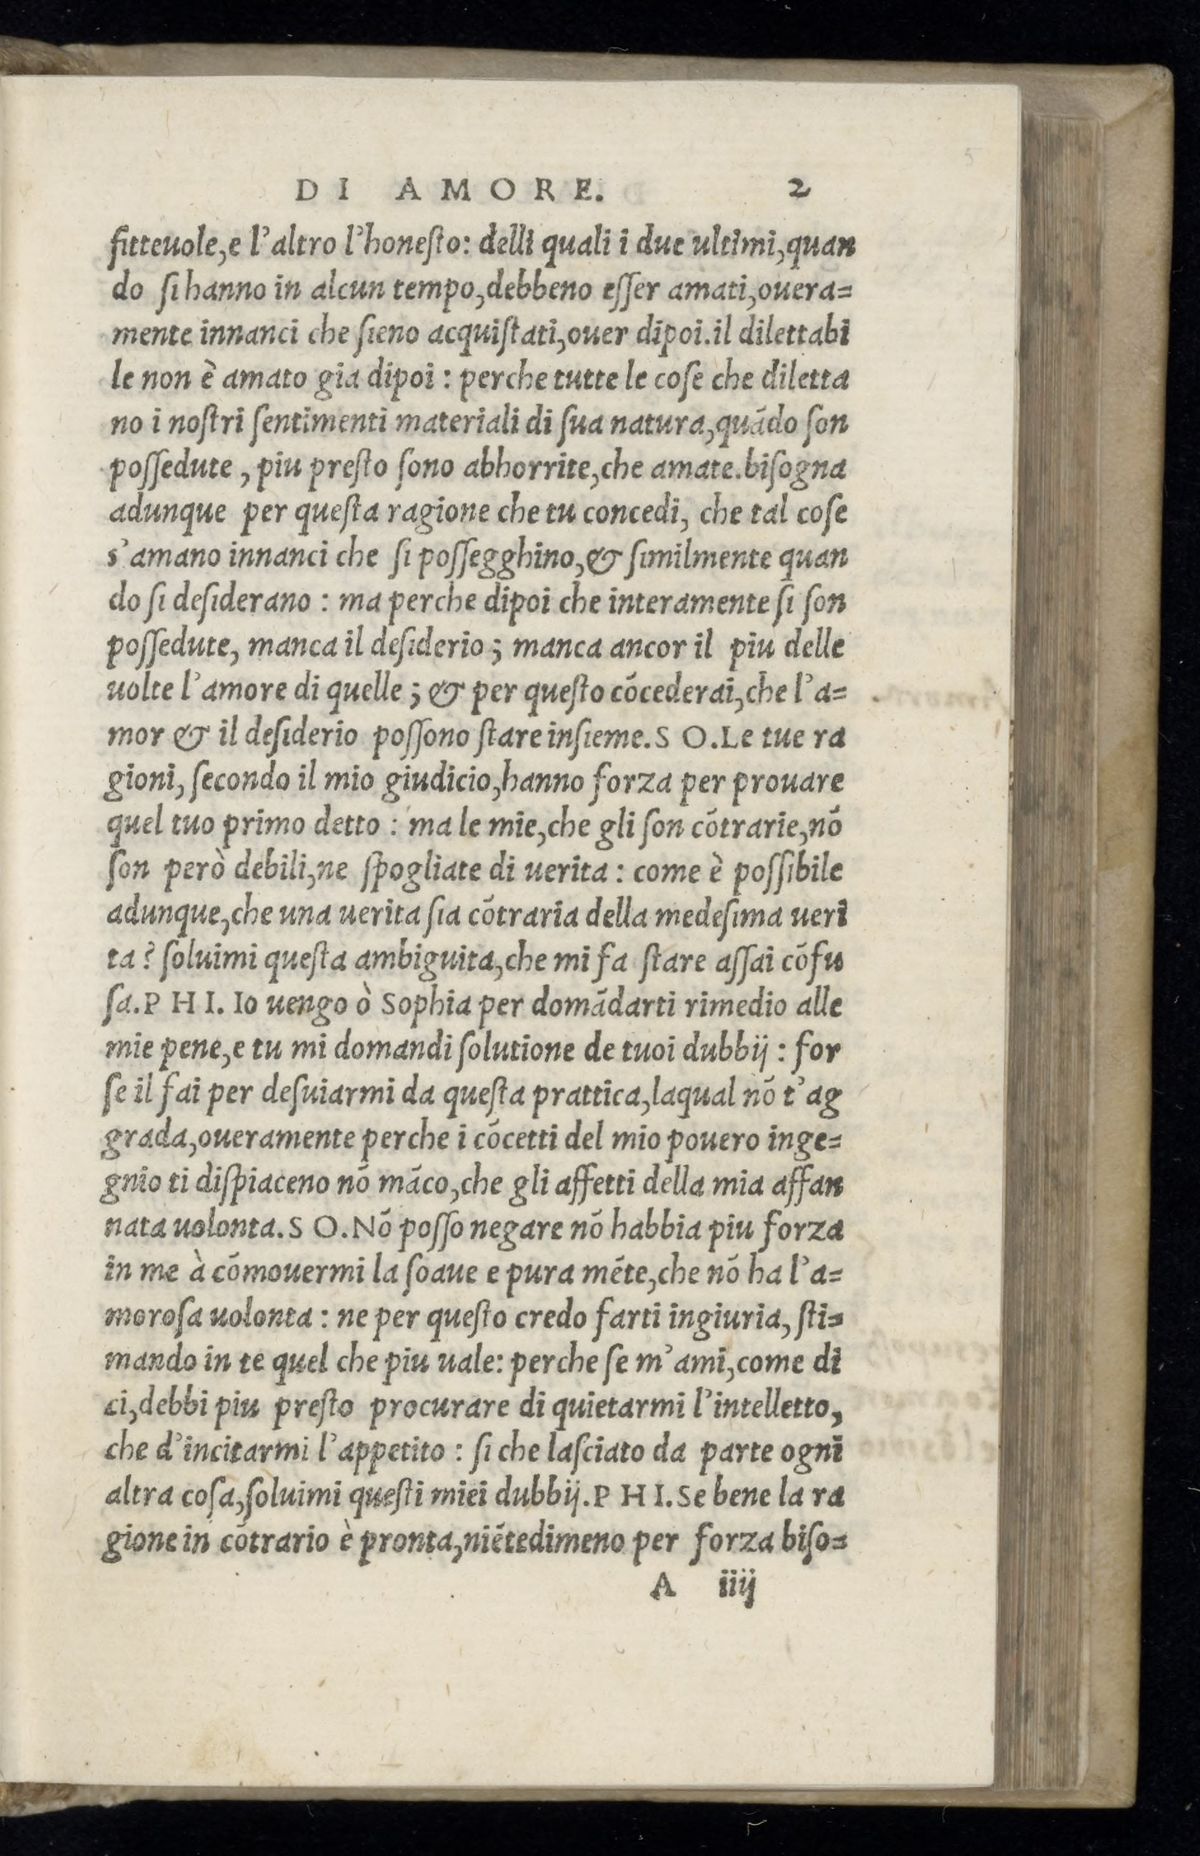 DI AMORE. 2
fitteuole,e l'altro l'honesto: delli quali i due ultimi,quan
do si hanno in alcun tempo,debbeno esser amati,ouera=
mente innanci che sieno acquistati,ouer dipoi.il dilettabi
le non è amato gia dipoi : perche tutte le cose che diletta
no i nostri sentimenti materiali di sua natura,quãdo son
possedute , piu presto sono abhorrite,che amate.bisogna
adunque per questa ragione che tu concedi, che tal cose
s'amano innanci che si possegghino,& similmente quan
do si desiderano : ma perche dipoi che interamente si son
possedute, manca il desiderio ; manca ancor il piu delle
uolte l'amore di quelle ; & per questo cõcederai,che l'a=
mor & il desiderio possono stare insieme.S O.Le tue ra
gioni, secondo il mio giudicio,hanno forza per prouare
quel tuo primo detto : ma le mie,che gli son cõtrarie,nõ
son però debili,ne spogliate di uerita : come è possibile
adunque,che una uerita sia cõtraria della medesima ueri
ta ? soluimi questa ambiguita,che mi fa stare assai cõfu
sa.P H I. Io uengo ò Sophia per domãdarti rimedio alle
mie pene,e tu mi domandi solutione de tuoi dubbij : for
se il fai per desuiarmi da questa prattica,laqual nõ t'ag
grada,oueramente perche i cõcetti del mio pouero inge=
gnio ti dispiaceno nõ mãco,che gli affetti della mia affan
nata uolonta.S O.Nõ posso negare nõ habbia piu forza
in me à cõmouermi la soaue e pura mẽte,che nõ ha l'a=
morosa uolonta : ne per questo credo farti ingiuria, sti=
mando in te quel che piu uale: perche se m'ami,come di
ci,debbi piu presto procurare di quietarmi l'intelletto,
che d'incitarmi l'appetito : si che lasciato da parte ogni
altra cosa,soluimi questi miei dubbij.P H I.Se bene la ra
gione in cõtrario è pronta,niẽtedimeno per forza biso=
A iiij